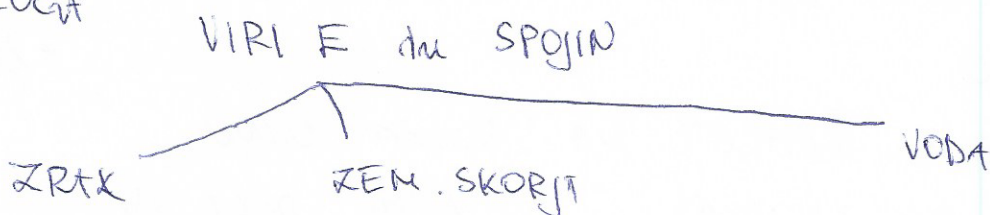 VIRI E in SPOJIN
ZRAK ZEM. SKORJA VODA